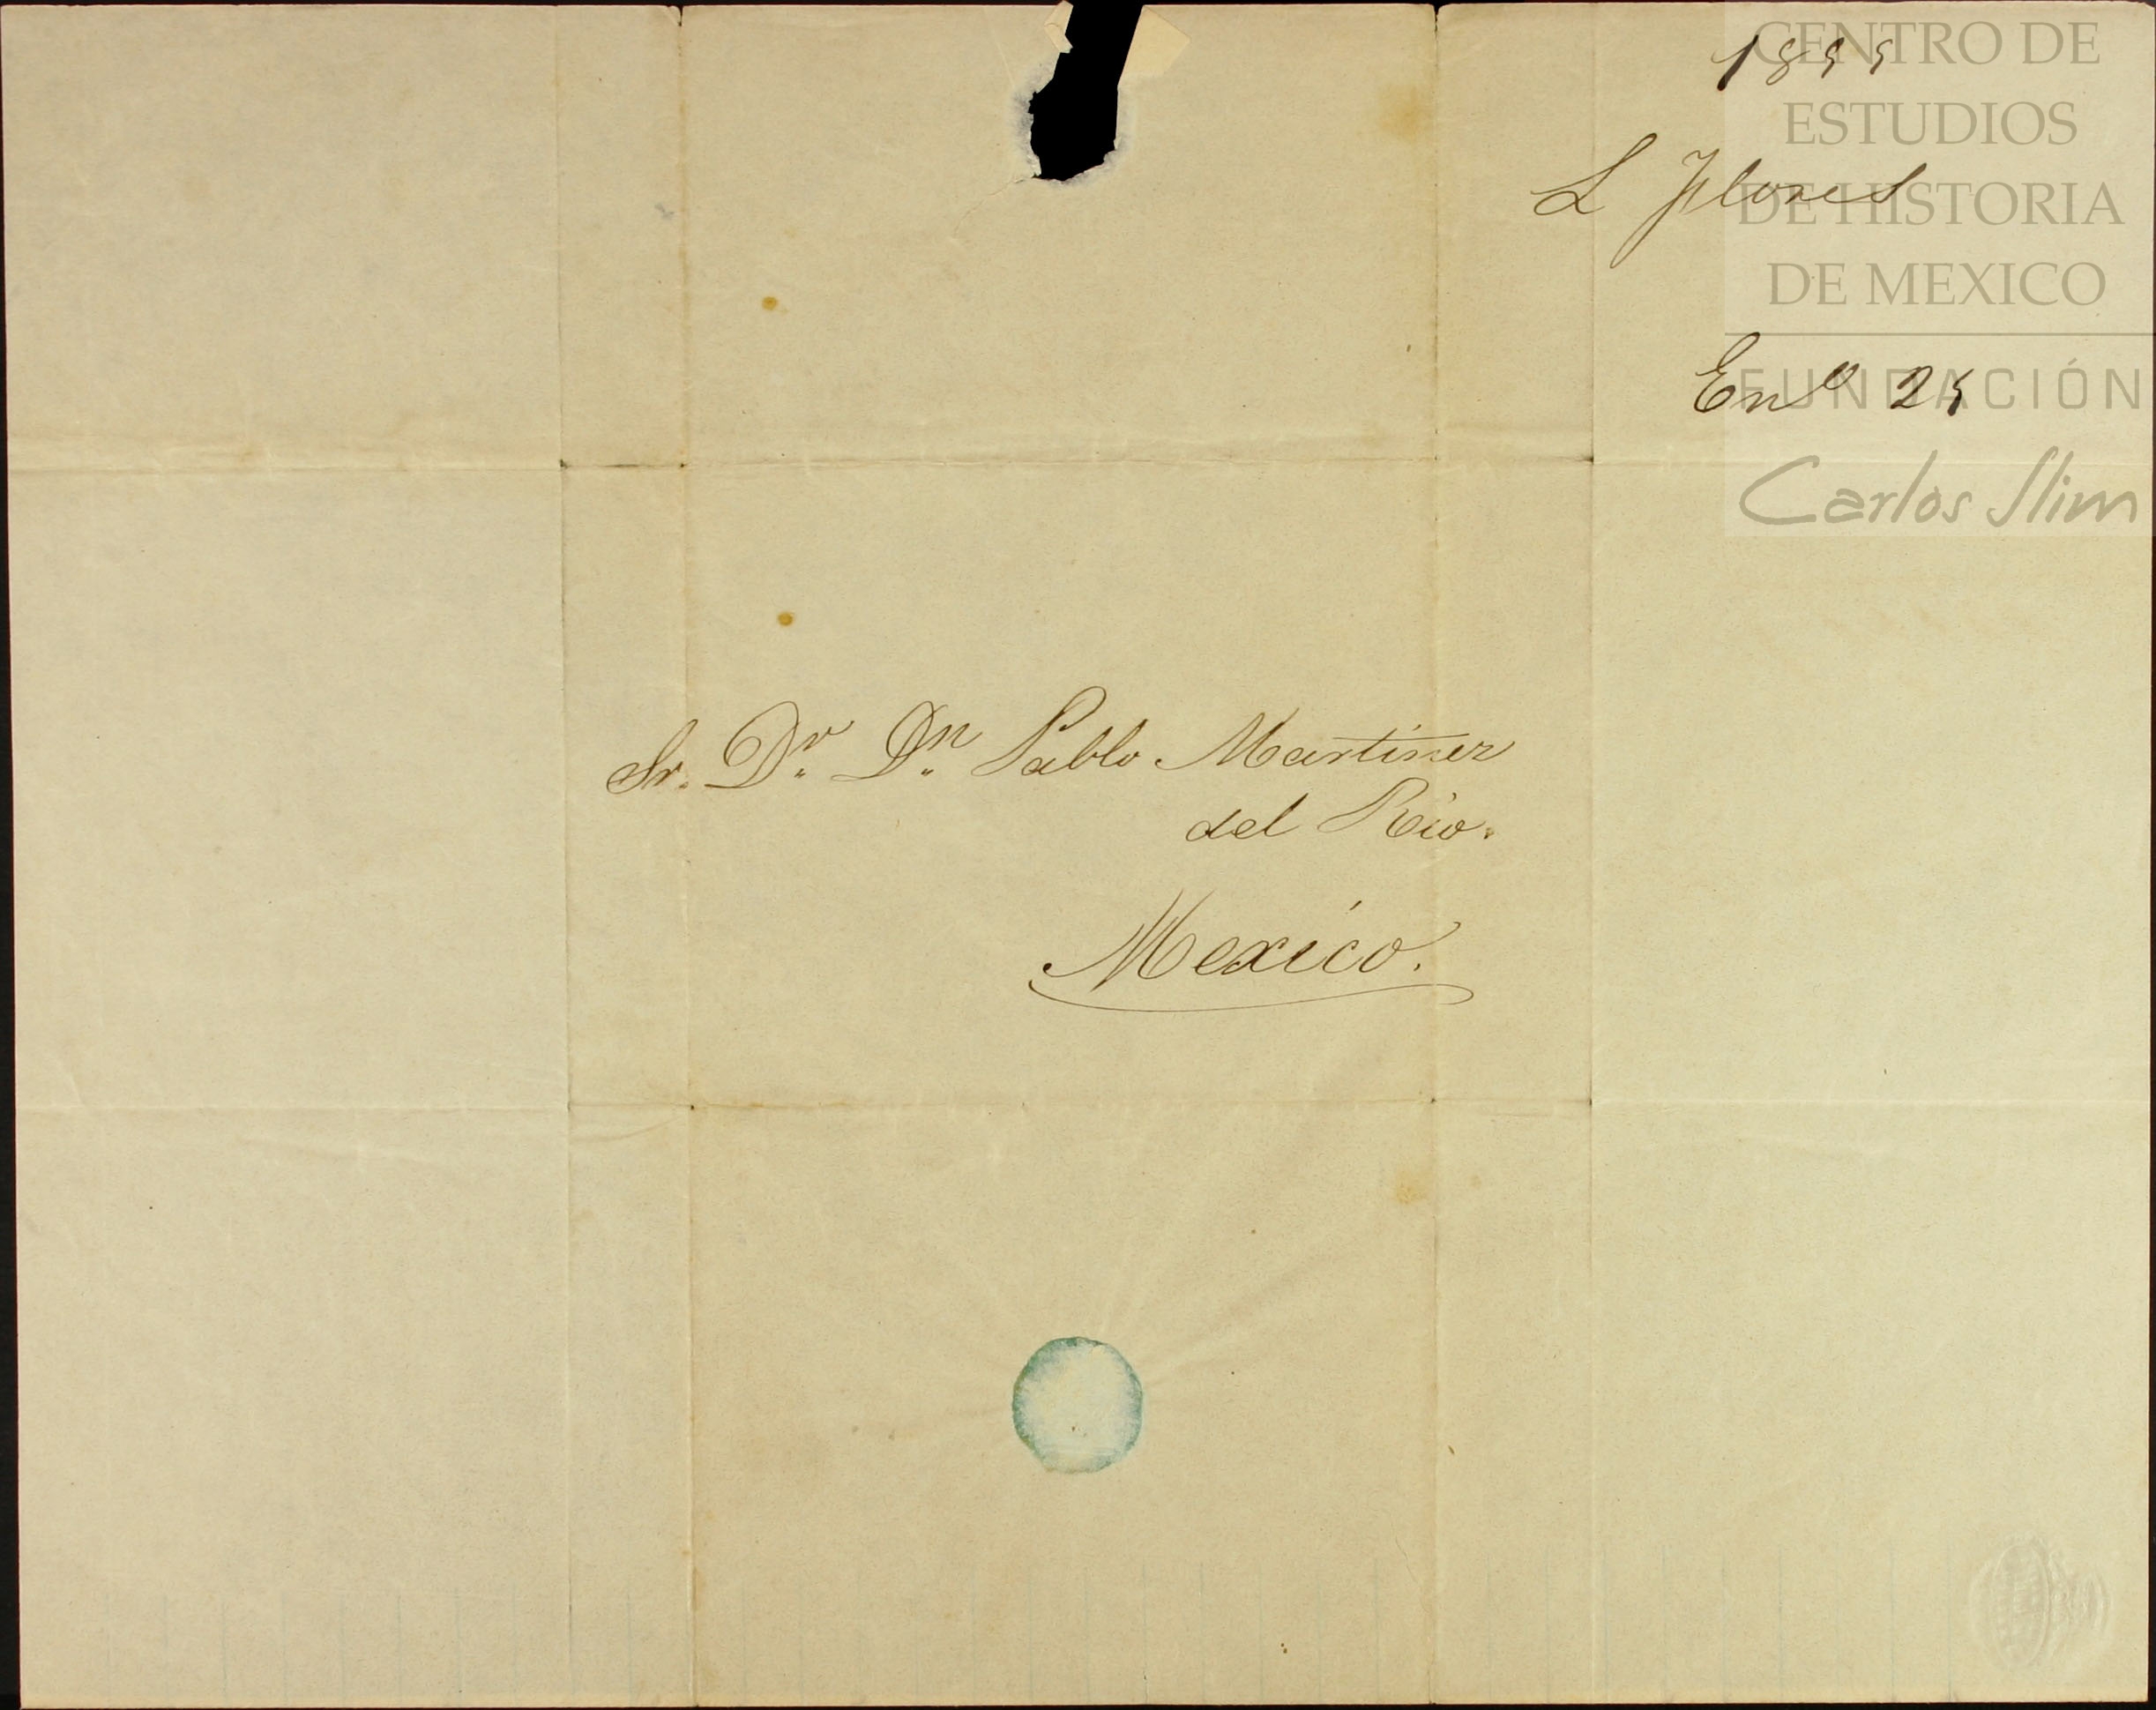 1855
L Flores
Enº 25
Sr. Dr. Dn. Pablo Martinez
del Rio.
Mexico.
CENTRO DE
ESTUDIOS
DE HISTORIA
DE MEXICO
FUNDACIÓN
Carlos Slim